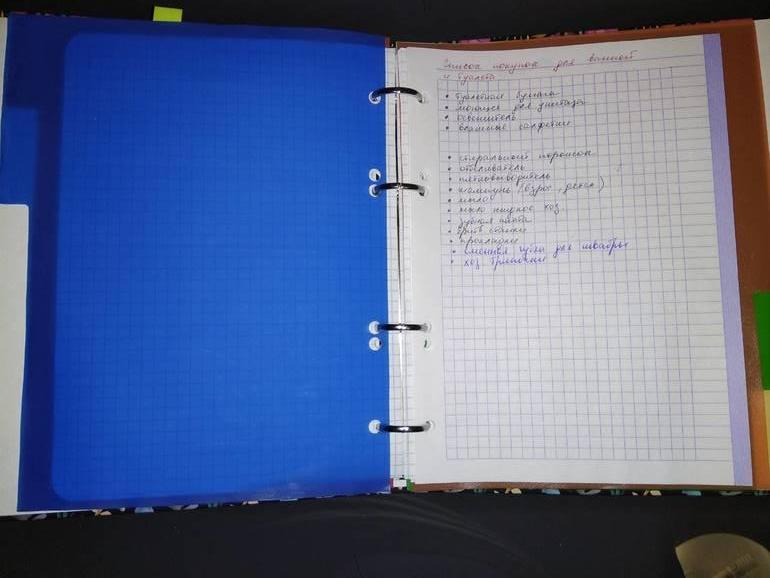 Список покупок для ванной
и туалета
• туалетная бумага
• моющее для унитаза
• освежитель
• влажные салфетки
• стиральный порошок
• отбеливатель
• пятновыводитель
• шампунь (взросл, детск)
• мыло
• мыло жидкое хоз.
• зубная паста
• бритв станки
• прокладки
• сменная губка для швабры
• хоз тряпочки